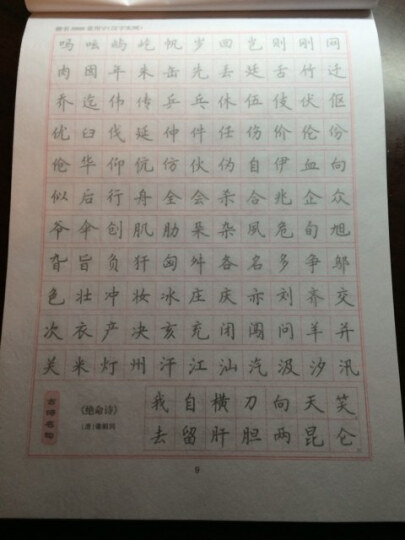 吗吆屿屹帆岁回岂则刚网
肉囡年朱缶先丢廷舌竹迁
乔迄伟传乒乓休伍伎伏伛
优臼伐延仲件任伤价伦份
伧华仰伉仿伙伪自伊血向
似后行舟全会杀合兆企众
爷伞创肌肋朵杂夙危旬旭
旮旨负犴匈舛各名多争邬
色壮冲妆冰庄庆亦刘齐交
次衣产决亥充闭闯问羊并
关米灯州汗江汕汽汲汐汛
古诗名句
《绝命诗》
(清)谭嗣同
我自横刀向天笑
去留肝胆两昆仑
9